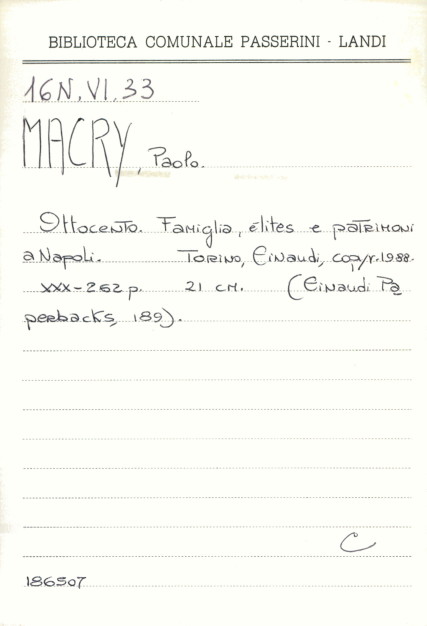 BIBLIOTECA COMUNALE PASSERINI - LANDI
16N.VI.33
MACRY, Paolo.
Ottocento. Famiglia, élites e patrimoni
a Napoli. Torino, Einaudi, copyr. 1988.
XXX-262 p. 21 cm. (Einaudi Pa
perbacks, 189).
C
186507